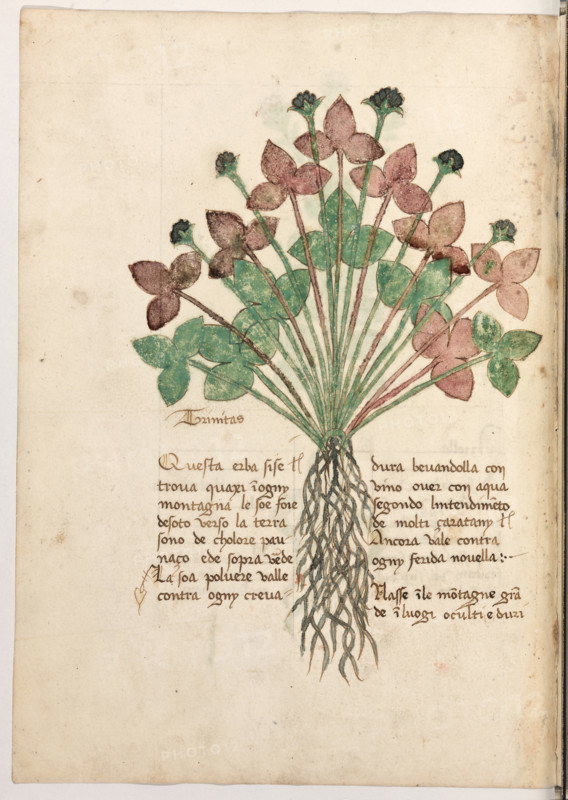 Trinitas
Questa erba sise
troua quaxi ĩogny
montagna le soe foie
desoto verso la terra
sono de cholore pau
nazo ede sopra vẽde
La soa poluere valle
contra ogny creua
dura beuandolla con
vino ouer con aqua
segondo lintendimẽto
de molti caratany
Ancora vale contra
ogny ferida nouella :~
Nasse ĩle mõtagne grã
de ĩluogi oculti e duri